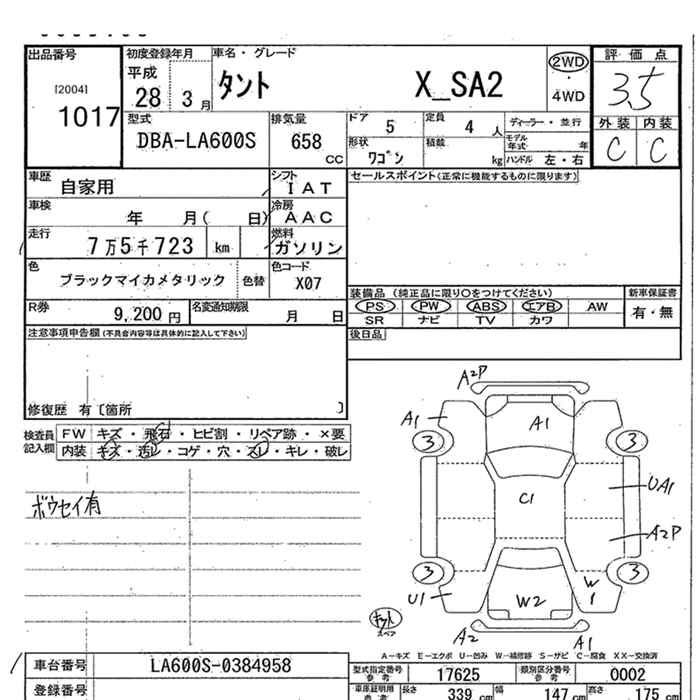 出品番号
[2004]
1017
初度登録年月
平成
28 3 月
車名・グレード
タント X_SA2
2WD
・
4WD
評価点
3.5
外装 内装
C C
型式
DBA-LA600S
排気量
658
CC
ドア 5
形状 ワゴン
定員 4 人
積載 kg
ディーラー・並行
モデル年式 年
ハンドル 左・右
車歴 自家用
シフト IAT
車検 年 月( 日)
冷房 AAC
走行 7万5千723 km
燃料 ガソリン
色 ブラックマイカメタリック 色替
色コード X07
R券 9,200 円
名変通知期限 月 日
セールスポイント(正常に機能するものに限ります)
装備品 (純正品に限り○をつけてください)
新車保証書
PS PW ABS エアB AW
SR ナビ TV カワ
有・無
後日品
注意事項申告欄(不具合内容等は具体的に記入して下さい)
修復歴 有〔箇所 〕
検査員記入欄
FW キズ・飛石・ヒビ割・リペア跡・×要
内装 キズ・汚レ・コゲ・穴・スレ・キレ・破レ
ボウセイ有
A2P
A1
A1
3
3
C1
UA1
A2P
3
3
U1
W2
W
1
キット
スペア
A2
A1
A-キズ E-エクボ U-凹み W-補修跡 S-サビ C-腐食 XX-交換済
車台番号 LA600S-0384958
登録番号
型式指定番号
参考
17625
類別区分番号
参考
0002
車庫証明用
参考
長さ 339 cm
幅 147 cm
高さ 175 cm